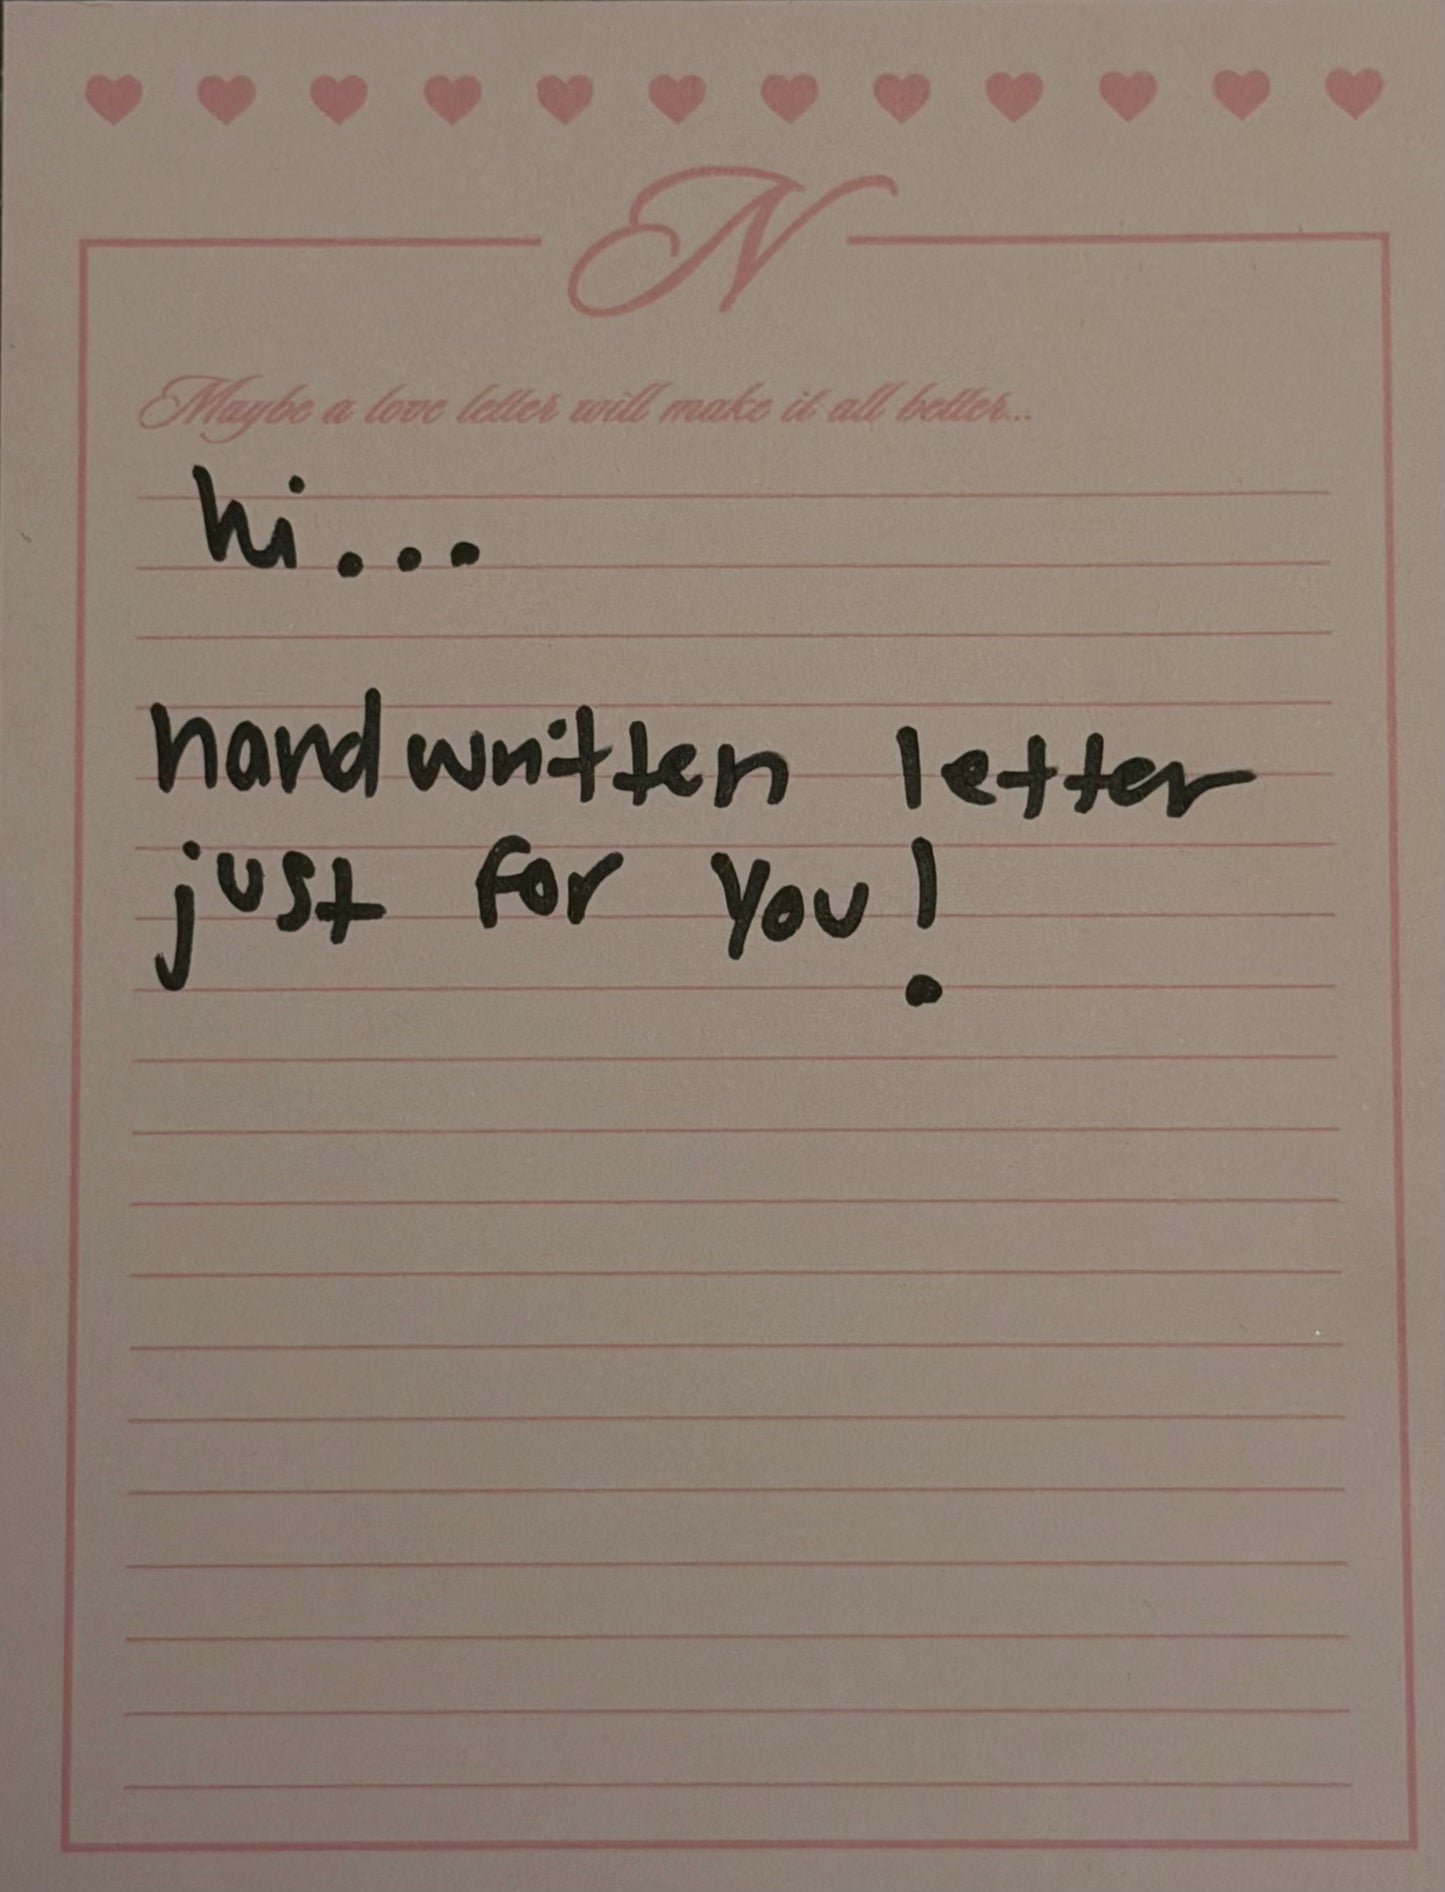 N
Maybe a love letter will make it all better...
hi...
handwritten letter
just for you!